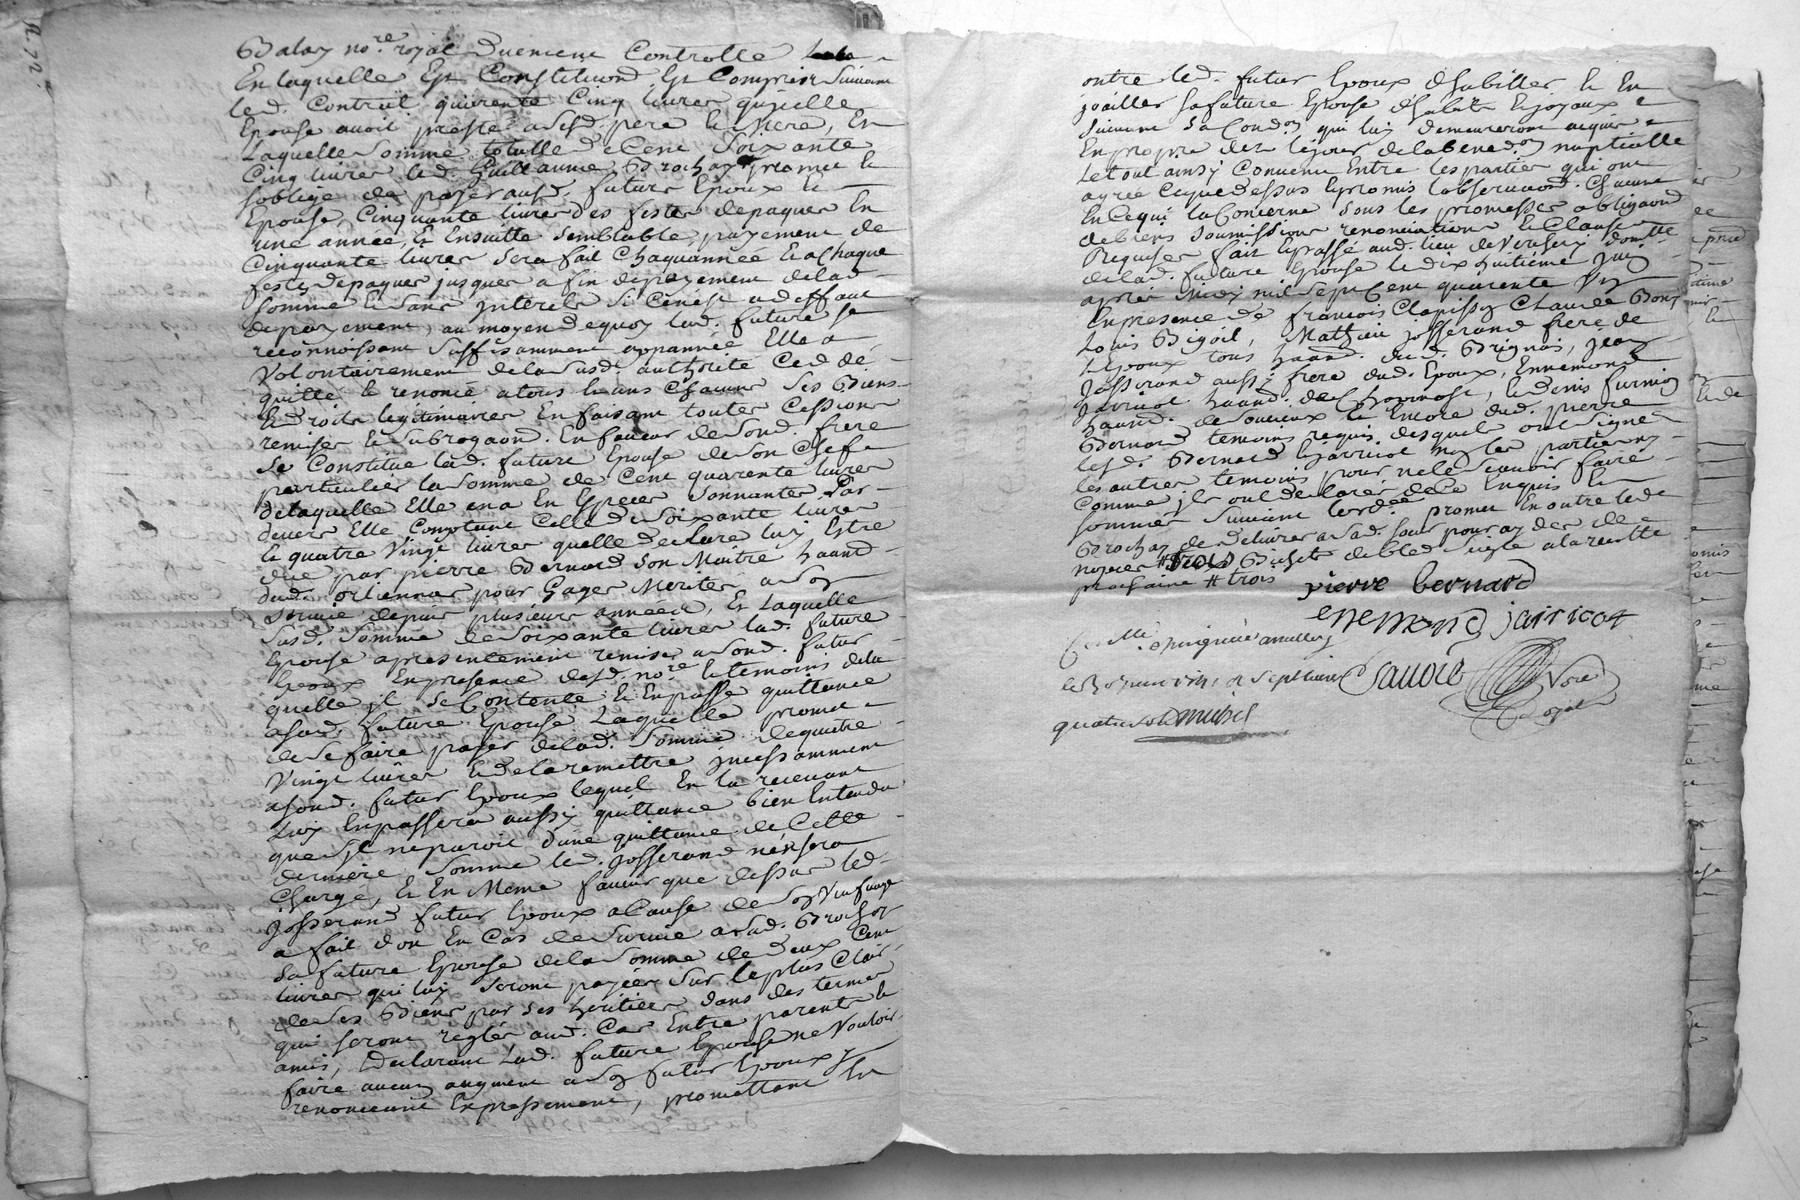 Balay no.re royal Duement Controllé
En laquelle Est Constitution Est Comprise Suivant
led. Contrat quarente Cinq livres qu'icelle
Epouse avoit presté a Sesd. pere & Mere, En
Laquelle Somme totalle de Cent Soixante
Cinq livres led. Guillaume Brochay promet &
soblige de payer ausd. futurs Epoux &
Epouse, Cinquante livres des festes de paques En
une année, Et Ensuitte Semblable payement de
Cinquante livres Sera fait Chaquannée & a Chaque
festes de paques jusques a fin de payement de lad.
Somme & Sans Interets Si Cenest a deffaut
de payement, au moyen dequoy lad. future Se
reconnoissant Suffisamment appannée Elle a
Volontairement de la Susd. authorité Ced dé
quitté & renoncé a tous & uns Chacuns Ses Biens
& droits legitimaires En faisant toutes Cessions
remises & Subrogaõns. En faveur de Sond. frere
Se Constitue lad. future Epouse de Son Chef
particulier la Somme de Cent quarente livres
de laquelle Elle en a En Especes Sonnantes Par
devers Elle Comptant Celle de Soixante livres
& quatre Vingt livres quelle declare luy Estre
due par pierre Bernard Son Maitre haand
dud. orlienas pour Gages Merités a Son
Service depuis plusieurs années, Et Laquelle
Susd. Somme de Soixante livres lad. future
Epouse a presentement remise a Sond. futur
Epoux En presence desd. no.re & temoins de la
quelle jl Se Contente & En passe quittance
a Sad. future Epouse Laquelle promet
de Se faire payer de lad. Somme de quatre
Vingt livres & de la remettre jncessamment
a Sond. futur Epoux lequel En la recevant
Luy En passera aussy quittance bien Entendu
que Sil neparoit d'une quittance de Cette
derniere Somme led. Josserand nen Sera
Chargé, Et En Meme faveur que dessus led.
Josserand futur Epoux a Cause de Son Veufvage
a fait don En Cas de Survie a Sad. Brochay
Sa future Epouse de la Somme de Deux Cent
livres qui luy Seront payées Sur le plus Clair
de Ses Biens par Ses heritiers dans des termes
qui Seront reglés aud. Cas Entre parents &
amis, Declarant Lad. future Epouse ne Vouloir
faire aucun augment a Son futur Epoux y
renonceant Expressement, promettant En
outre led. futur Epoux d'habiller & En
joailler Sa future Epouse d'habits & joyaux
Suivant Sa Condõn qui luy demeureront acquis
En propre des le jour de la benedõn nuptialle
Le tout ainsy Convenu Entre les parties qui ont
agréé Ceque dessus & promis l'observaõn. Chacune
En Ce qui la Concerne Sous les promesses obligaõns
de biens Soumissions renonciations & Clauses
Requises fait & passé aud. lieu de Verseray domlle
de lad. future Epouse le dix huitième Juin
après Midy mil Sept Cent quarente Un
En presence de françois Clapisson Claude Bony
Louis Bigoit, Mathieu Josserand frere de
L'Epoux tous haand. dud. Brignais, Jean
Josserand aussy frere dud. Epoux, Ennemond
Jarricot haand. de Chaponost, & Denis furnion
haand. de Soucieux & Encore dud. pierre
Bernard temoins requis desquels ont Signé
lesd. Bernard & Jarricot non les parties ny
les autres temoins pour ne le Scavoir faire
Comme jls ont declarés de Ce Enquis &
Sommés Suivant l'ord.ce promet En outre led.
Brochay de Delivrer a Sad. Soeur pour ay der de
noces # Bichets de bled Seigle a la recolte
prochaine # trois
pierre bernard
enemond jarricot
Con.llé
le 30 juin 1741 a Sept livres
quatre Sols
Sauvie
No.re
Royal